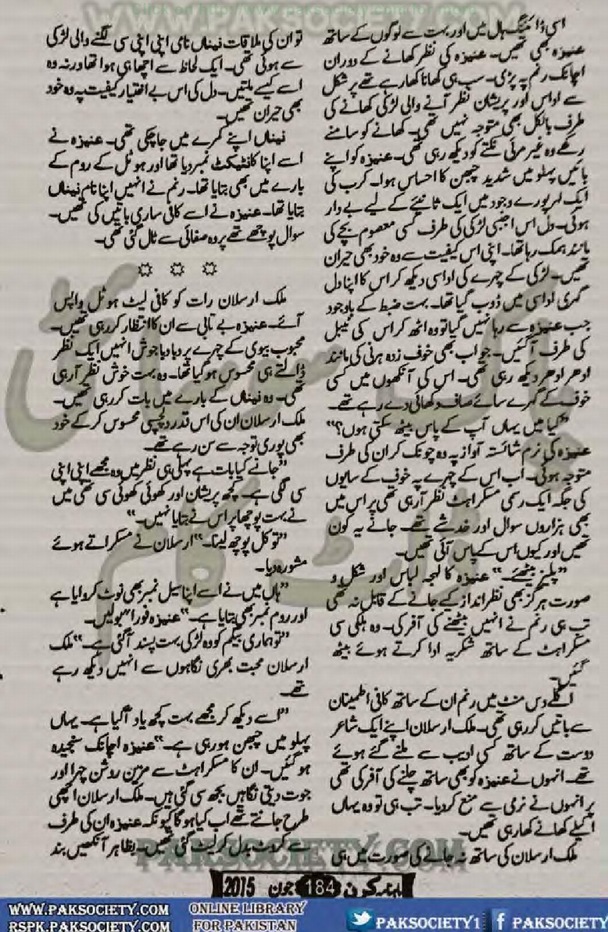 WWW.PAKSOCIETY.COM
اسی ڈائننگ ہال میں اور بہت سے لوگوں کے ساتھ
عنیزہ بھی تھیں۔ عنیزہ کی نظر کھانے کے دوران
اچانک رنم پہ پڑی۔ سب ہی کھانا کھا رہے تھے پر شکل
سے اداس اور پریشان نظر آنے والی لڑکی کھانے کی
طرف بالکل بھی متوجہ نہیں تھی۔ کھانے کو سامنے
رکھے وہ غیر مرئی نکتے کو دیکھ رہی تھی۔ عنیزہ کو اپنے
بائیں پہلو میں شدید چبھن کا احساس ہوا۔ کرب کی
ایک لہر پورے وجود میں ایک ثانیئے کے لیے بے دار
ہوئی۔ دل اس اجنبی لڑکی کی طرف کسی معصوم بچے کی
مانند ہمک رہا تھا۔ اپنی اس کیفیت سے وہ خود بھی حیران
تھیں۔ لڑکی کے چہرے کی اداسی دیکھ کر اس کا اپنا دل
گہری اداسی میں ڈوب گیا تھا۔ بہت ضبط کے باوجود
جب عنیزہ سے رہا نہیں گیا تو وہ اٹھ کر اس کی ٹیبل
کی طرف آگئیں۔ جو اب بھی خوف زدہ ہرنی کی مانند
ادھر ادھر دیکھ رہی تھی۔ اس کی آنکھوں میں کسی
خوف کے گہرے سائے صاف دکھائی دے رہے تھے۔
"کیا میں یہاں آپ کے پاس بیٹھ سکتی ہوں؟"
عنیزہ کی نرم شائستہ آواز پہ وہ چونک کر ان کی طرف
متوجہ ہوئی۔ اب اس کے چہرے پہ خوف کے سایوں
کی جگہ ایک رسمی مسکراہٹ نظر آرہی تھی پر اس میں
بھی ہزاروں سوال اور خدشے تھے۔ جانے یہ کون
تھیں اور کیوں اس کے پاس آئی تھیں۔
"پلیز بیٹھئے۔" عنیزہ کا لہجہ لباس اور شکل و
صورت ہرگز بھی نظر انداز کیے جانے کے قابل نہ تھی
تب ہی رنم نے انہیں بیٹھنے کی آفر کی۔ وہ ہلکی سی
مسکراہٹ کے ساتھ شکریہ ادا کرتے ہوئے بیٹھ
گئیں۔
اگلے دس منٹ میں رنم ان کے ساتھ کافی اطمینان
سے باتیں کر رہی تھی۔ ملک ارسلان اپنے ایک شاعر
دوست کے ساتھ کسی ادیب سے ملنے گئے ہوئے
تھے۔ انہوں نے عنیزہ کو بھی ساتھ چلنے کی آفر کی تھی
پر انہوں نے نرمی سے منع کردیا۔ تب ہی تو وہ یہاں
اکیلے کھانے کھا رہی تھیں۔
ملک ارسلان کی ساتھ نہ جانے کی صورت میں ہی
تو ان کی ملاقات نیناں نامی اپنی اپنی سی لگنے والی لڑکی
سے ہوئی تھی۔ ایک لحاظ سے اچھا ہی ہوا تھا ورنہ وہ
اسے کیسے ملتیں۔ دل کی اس بے اختیار کیفیت پہ وہ خود
بھی حیران تھیں۔
نیناں اپنے کمرے میں جاچکی تھی۔ عنیزہ نے
اسے اپنا کانٹیکٹ نمبر دیا تھا اور ہوٹل کے روم کے
بارے میں بھی بتایا تھا۔ رنم نے انہیں اپنا نام نیناں
بتایا تھا۔ عنیزہ نے اسے کافی ساری باتیں کی تھیں۔
سوال پوچھے تھے پر وہ صفائی سے ٹال گئی تھی۔
☼ ☼ ☼
ملک ارسلان رات کو کافی لیٹ ہوٹل واپس
آئے۔ عنیزہ بے تابی سے ان کا انتظار کر رہی تھیں۔
محبوب بیوی کے چہرے پر دبا دبا جوش انہیں ایک نظر
ڈالتے ہی محسوس ہوگیا تھا۔ وہ بہت خوش نظر آرہی
تھی۔ وہ نیناں کے بارے میں بات کر رہی تھیں۔
ملک ارسلان ان کی اس قدر دلچسپی محسوس کرکے خود
بھی پوری توجہ سے سن رہے تھے۔
"جانے کیا بات ہے پہلی ہی نظر میں وہ مجھے اپنی اپنی
سی لگی ہے۔ کچھ پریشان اور کھوئی کھوئی سی تھی میں
نے بہت پوچھا پر اس نے بتایا نہیں۔"
"تو کل پوچھ لینا۔" ارسلان نے مسکراتے ہوئے
مشورہ دیا۔
"ہاں میں نے اسے اپنا سیل نمبر بھی نوٹ کروایا ہے
اور روم نمبر بھی بتایا ہے۔" عنیزہ فوراً بولیں۔
"تو ہماری بیگم کو وہ لڑکی بہت پسند آگئی ہے۔" ملک
ارسلان محبت بھری نگاہوں سے انہیں دیکھ رہے
تھے۔
"اسے دیکھ کر مجھے بہت کچھ یاد آگیا ہے۔ یہاں
پہلو میں چبھن ہو رہی ہے۔" عنیزہ اچانک سنجیدہ
ہوگئیں۔ ان کا مسکراہٹ سے مزین روشن چہرا اور
جوت دیتی نگاہیں بجھ سی گئی ہیں۔ ملک ارسلان اچھی
طرح جانتے تھے اب کیا ہوگا کیونکہ عنیزہ ان کی طرف
سے کروٹ بدل کر لیٹ گئی تھیں۔ بظاہر آنکھیں بند
PAKSOCIETY.COM
ماہنامہ کرن 184 جون 2015
WWW.PAKSOCIETY.COM
RSPK.PAKSOCIETY.COM
ONLINE LIBRARY
FOR PAKISTAN
PAKSOCIETY1
PAKSOCIETY